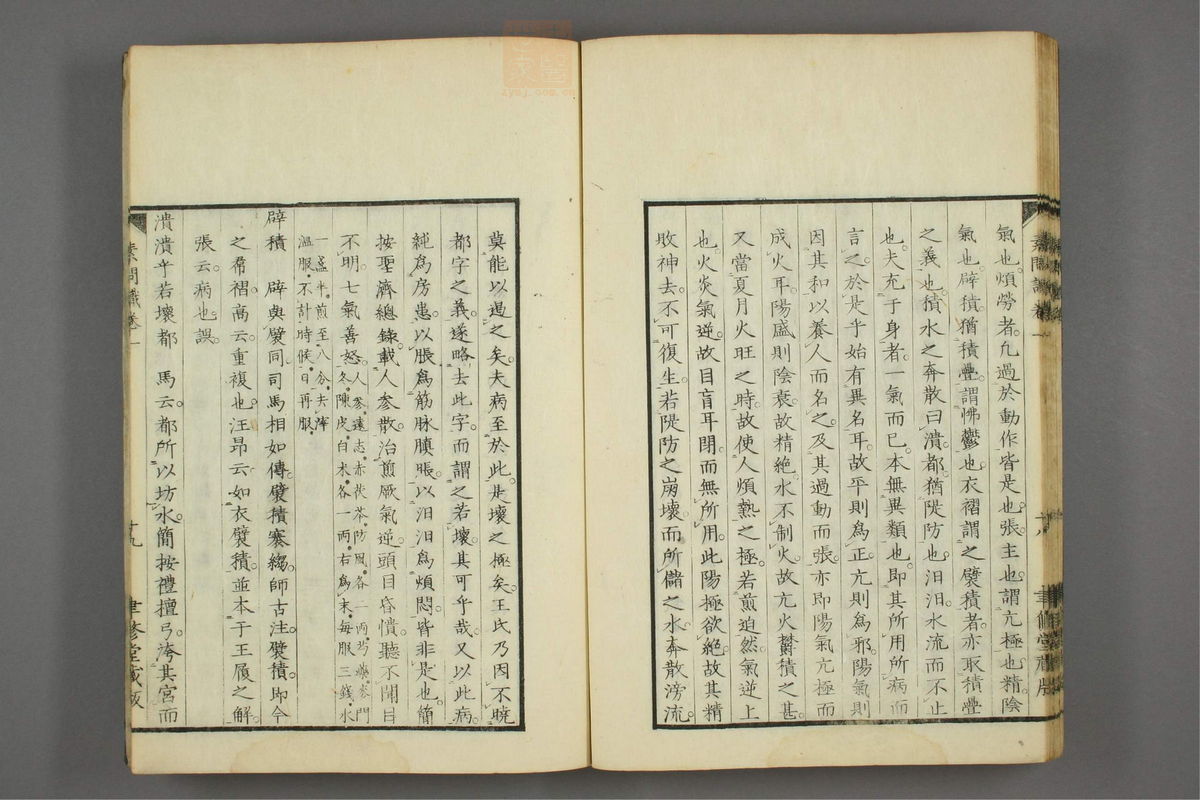 氣也。煩勞者。凡過於動作皆是也。張主也。謂亢極也。精陰
氣也。辟積猶積疊。謂怫鬱也。衣褶謂之襞積者。亦取積疊
之義也。積水之奔散曰潰。都猶隄防也。汩汩。水流而不止
也。夫充于身者。一氣而已。本無異類也。即其所用所病而
言之。於是乎始有異名耳。故平則為正。亢則為邪。陽氣則
因其和以養人而名之。及其過動而張。亦即陽氣亢極而
成火耳。陽盛則陰衰。故精絶。水不制火。故亢火鬱積之甚。
又當夏月火旺之時。故使人煩熱之極。若煎迫然。氣逆上
也。火炎氣逆。故目盲耳閉。而無所用。此陽極欲絶。故其精
敗神去。不可復生。若隄防之崩壞。而所儲之水。奔散滂流。
莫能以遏之矣。夫病至於此。是壞之極矣。王氏乃因不曉
都字之義。遂略去此字。而謂之若壞。其可乎哉。又以此病
純為房患。以脹為筋脉䐜脹。以汩汩為煩悶。皆非是也。簡
按聖濟總錄。載人參散。治煎厥氣逆。頭目昏憒。聽不聞。目
不明。七氣善怒。人參。遠志。赤茯苓。防風。各一兩。芍藥。麥門
冬。陳皮。白朮。各一兩。右為末。每服三錢。水
一盞半。煎至八分。去滓
溫服。不計時候。日再服。
辟積 辟與襞同。司馬相如傳。襞積褰縐。師古注。襞積。即今
之帬褶。高云。重複也。汪昂云。如衣襞積。並本于王履之解。
張云。病也。誤。
潰潰乎若壞都 馬云。都所以坊水。簡按禮檀弓。洿其宮而
素問識卷一
十九
聿修堂藏版